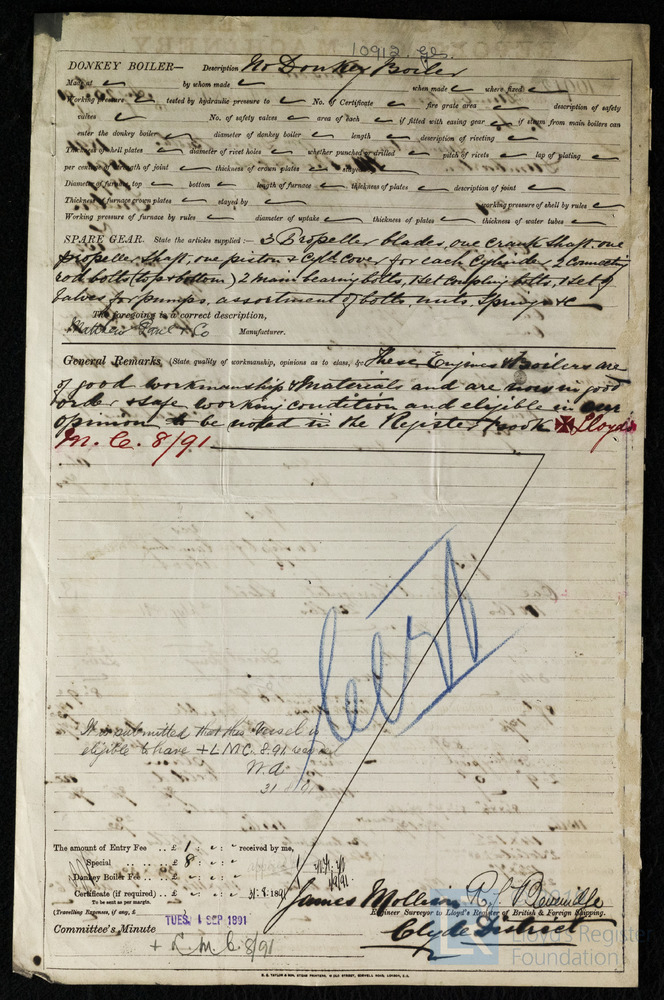 10912 Gls
DONKEY BOILER— Description No Donkey Boiler
Made at by whom made when made where fixed
Working pressure tested by hydraulic pressure to No. of Certificate fire grate area description of safety
valves No. of safety valves area of each if fitted with easing gear if steam from main boilers can
enter the donkey boiler diameter of donkey boiler length description of riveting
Thickness of shell plates diameter of rivet holes whether punched or drilled pitch of rivets lap of plating
per centage of strength of joint thickness of crown plates stayed by
Diameter of furnace, top bottom length of furnace thickness of plates description of joint
Thickness of furnace crown plates stayed by working pressure of shell by rules
Working pressure of furnace by rules diameter of uptake thickness of plates thickness of water tubes
SPARE GEAR. State the articles supplied:— 3 Propeller blades, one crank shaft, one
propeller shaft, one piston & Cyld Cover for each Cylinder, 2 Connecting
rod bolts (top & bottom) 2 main bearing bolts, 1 set coupling bolts, 1 set of
Valves for pumps, assortment of bolts, nuts, Springs &c
The foregoing is a correct description,
Matthew Paul & Co Manufacturer.
General Remarks, (State quality of workmanship, opinions as to class, &c. These Engines & Boilers are
of good workmanship & Materials and are now in good
order & safe working condition and eligible in our
opinion to be noted in the Register Book ✠ Lloyd's
M. C. 8/91
It is submitted that this Vessel is
eligible to have + L.M.C. 8.91 record
The amount of Entry Fee .. £ 1 : - : - received by me,
Special .. £ 8 : - : -
Donkey Boiler Fee .. £ - : - : -
Certificate (if required) .. £ - : - : - 31.8.1891
To be sent as per margin.
(Travelling Expenses, if any, £
James Mollison R. J. Beveridge
Engineer Surveyor to Lloyd's Register of British & Foreign Shipping.
Clyde District
Committee's Minute TUES. 1 SEP 1891
+ L.M.C. 8/91
Lloyd's Register
Foundation